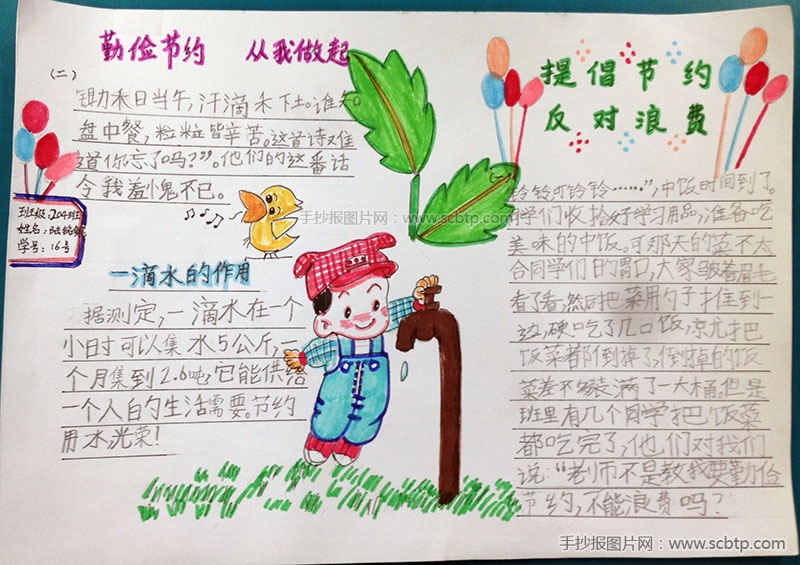 勤俭节约 从我做起
(二)
锄禾日当午,汗滴禾下土。谁知
盘中餐,粒粒皆辛苦。这首诗难
道你忘了吗?”。他们的这番话
令我羞愧不已。
班级:204班
姓名:
学号:16号
一滴水的作用
据测定,一滴水在一个
小时可以集水5公斤,一
个月集到2.6吨,它能供给
一个人的生活需要。节约
用水光荣!
提倡节约
反对浪费
(一)
铃铃叮铃铃……”,中饭时间到了。
同学们收拾好学习用品,准备吃
美味的中饭。可那天的菜不太
合同学们的胃口,大家皱着眉毛
看了看,然后把菜用勺子扫住到一
边,硬吃了几口饭,就把
饭菜都倒掉了,倒掉的饭
菜差不多装满了一大桶。但是
班里有几个同学把饭菜
都吃完了,他们对我们
说:“老师不是教我要勤俭
节约,不能浪费吗?
手抄报图片网:www.scbtp.com
手抄报图片网:www.scbtp.com